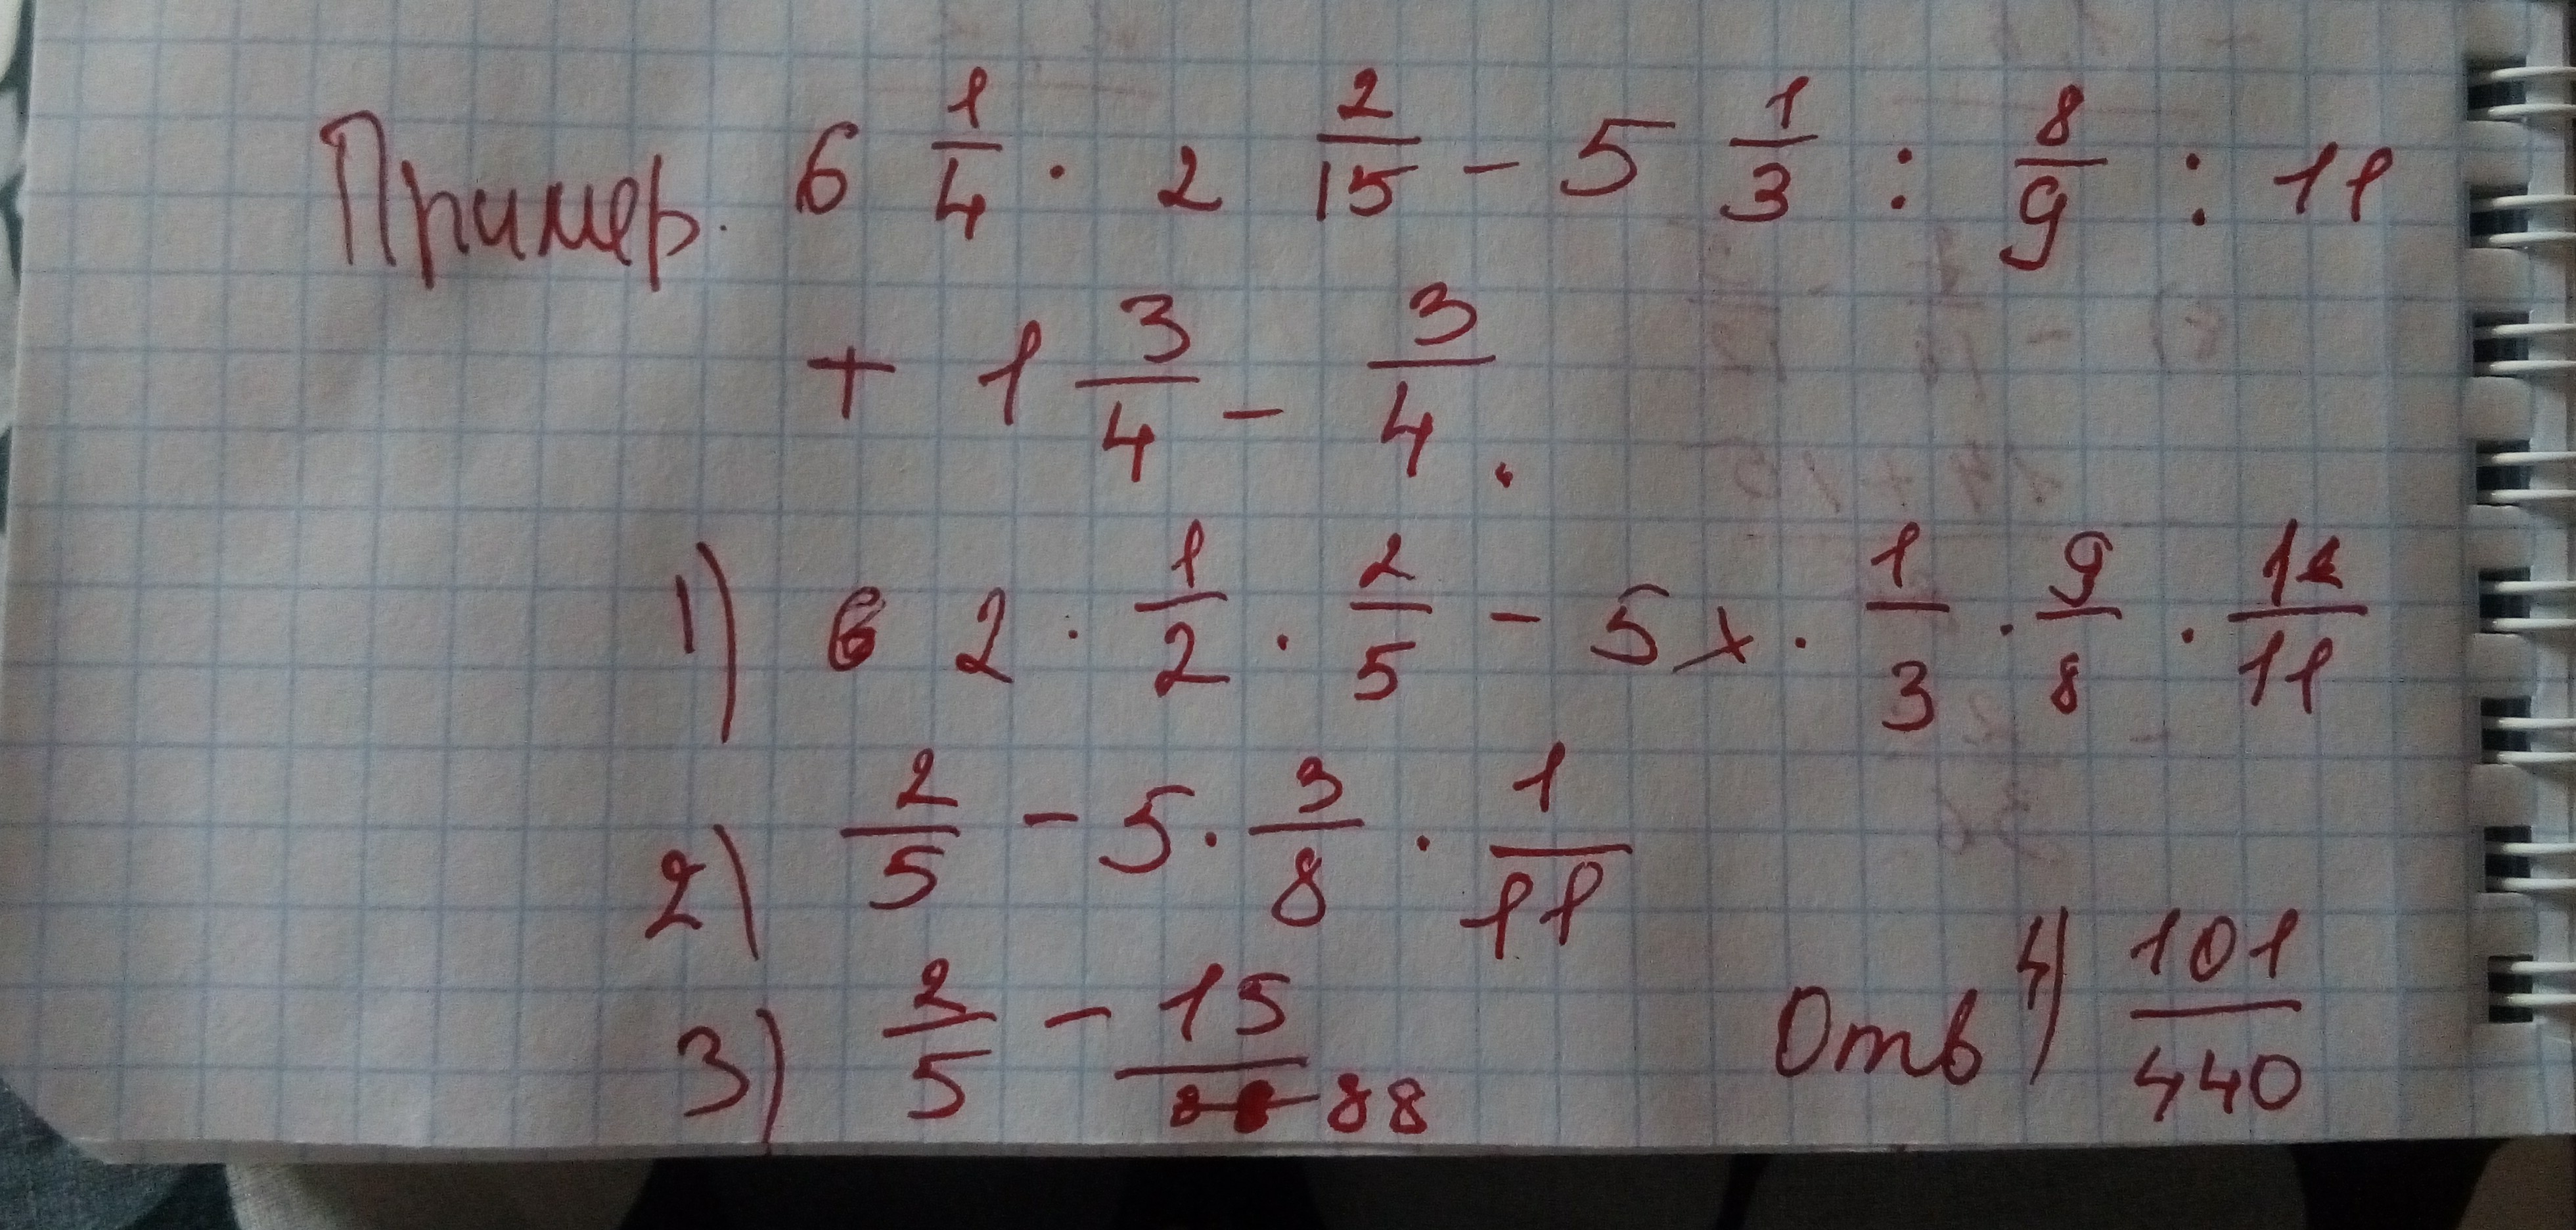 Пример. 6 1/4 · 2 2/15 - 5 1/3 : 8/9 : 11
+ 1 3/4 - 3/4.
1) 6 2 · 1/2 · 2/5 - 5 х · 1/3 · 9/8 · 11/11
2) 2/5 - 5 · 3/8 · 1/11
3) 2/5 - 15/88
Отв 4) 101/440